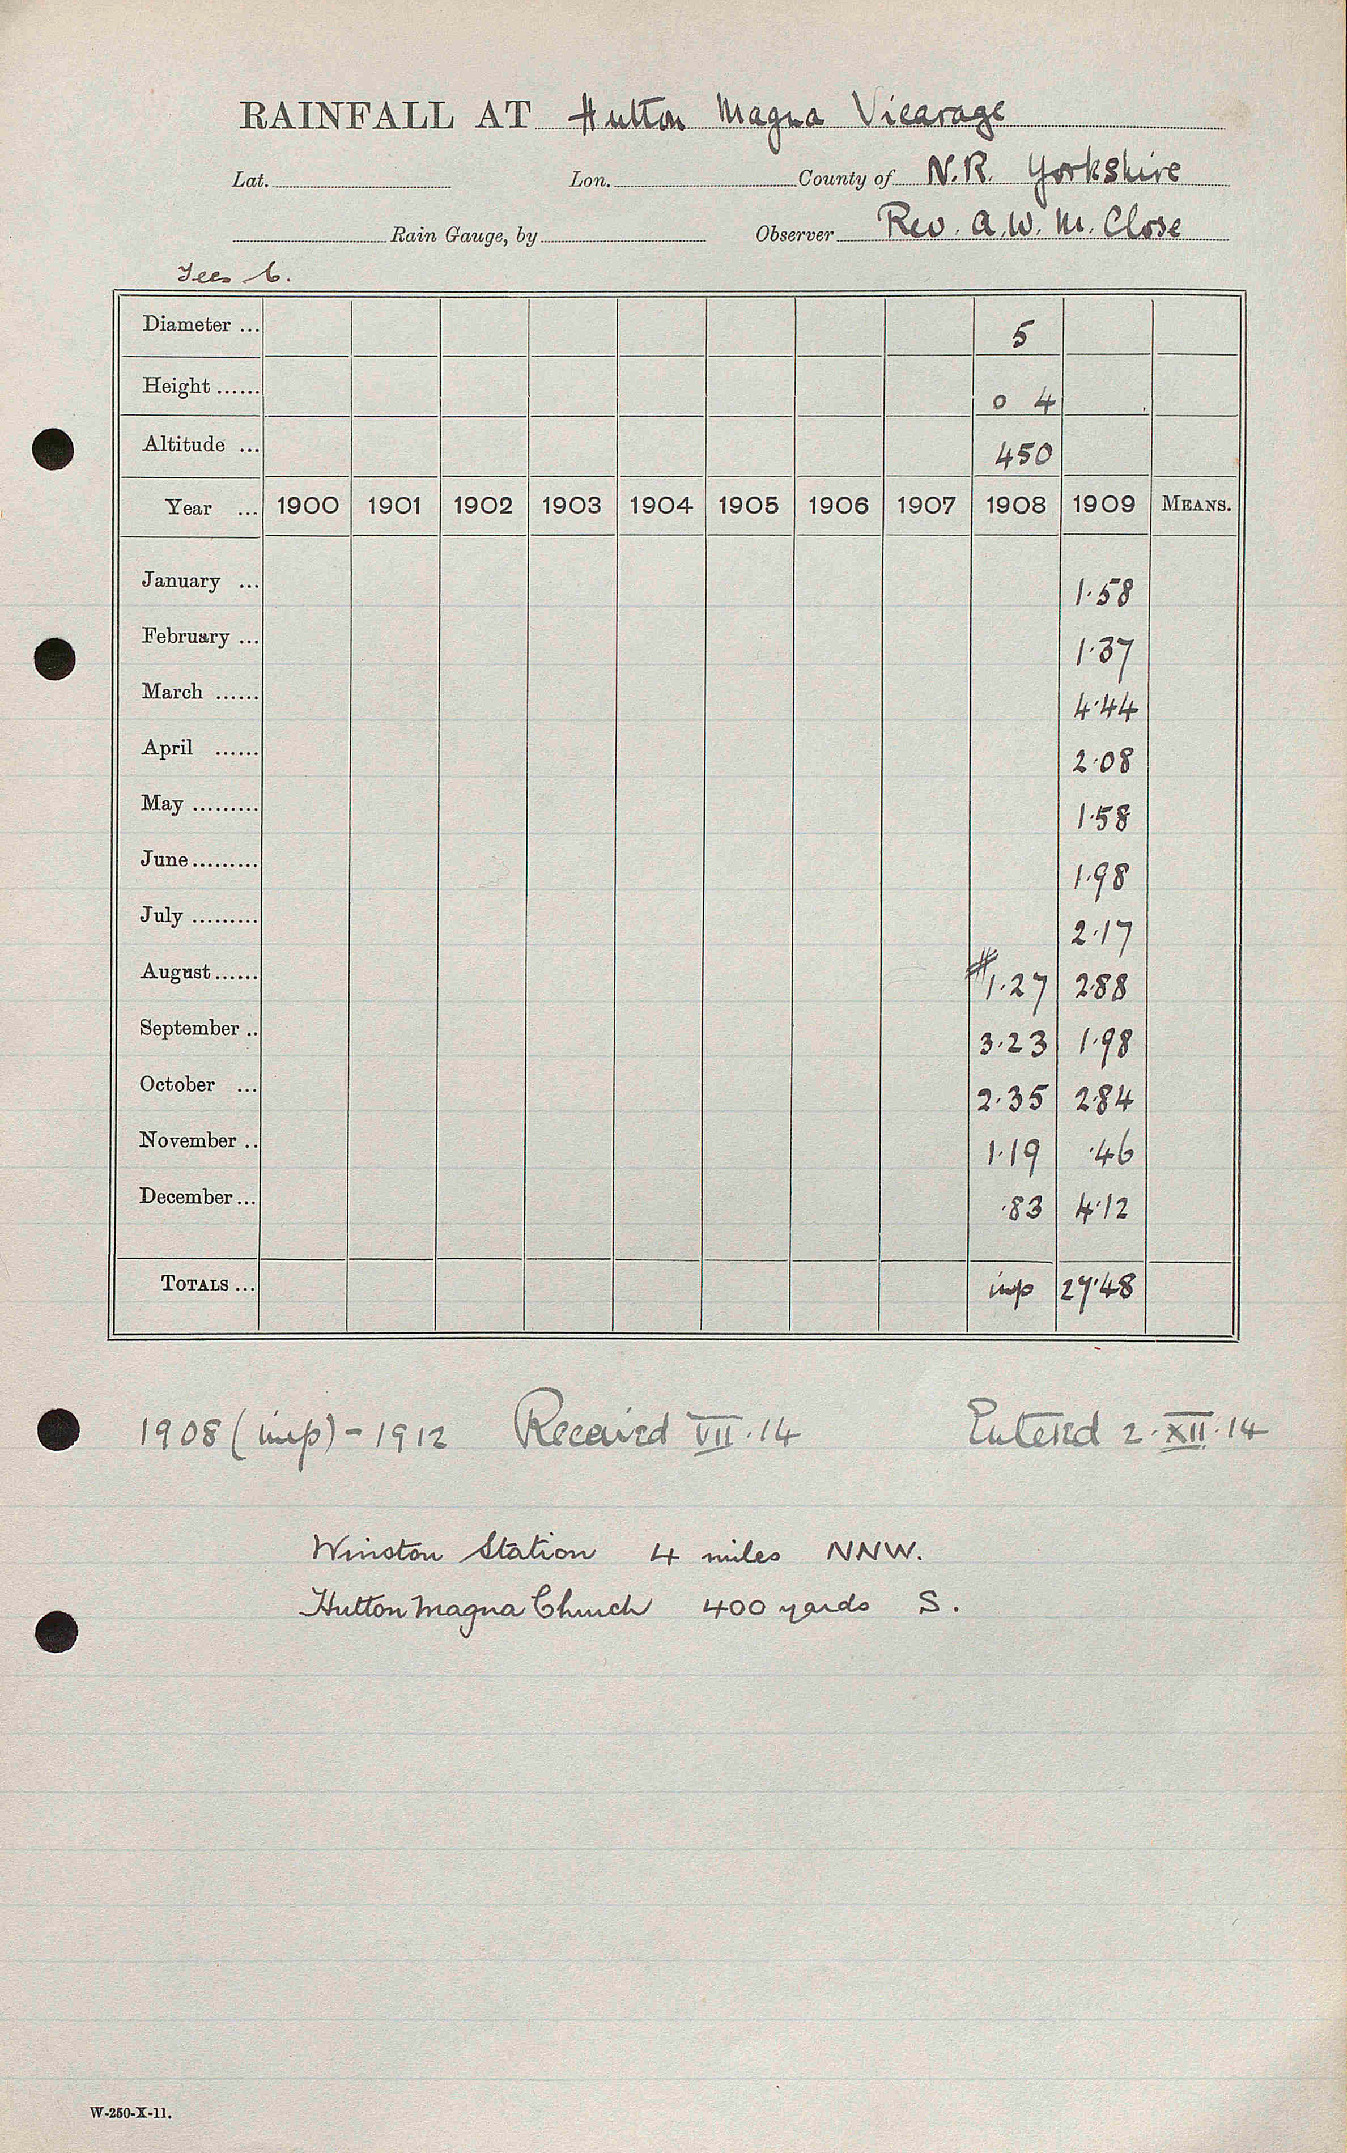 RAINFALL AT Hutton Magna Vicarage
Lat. Lon. County of N.R. Yorkshire
Rain Gauge, by Observer Rev. A.W.M. Close
Tees 6.
Diameter ... 5
Height ...... 0 4
Altitude ... 450
Year ... 1900 1901 1902 1903 1904 1905 1906 1907 1908 1909 MEANS.
January ... 1.58
February ... 1.37
March ...... 4.44
April ...... 2.08
May ......... 1.58
June......... 1.98
July ......... 2.17
August...... #1.27 2.88
September .. 3.23 1.98
October ... 2.35 2.84
November .. 1.19 .46
December... .83 4.12
TOTALS ... inp 27.48
1908 (inp) - 1912 Received VII.14 Entered 2.XII.14
Winston Station 4 miles NNW.
Hutton Magna Church 400 yards S.
W-250-X-11.